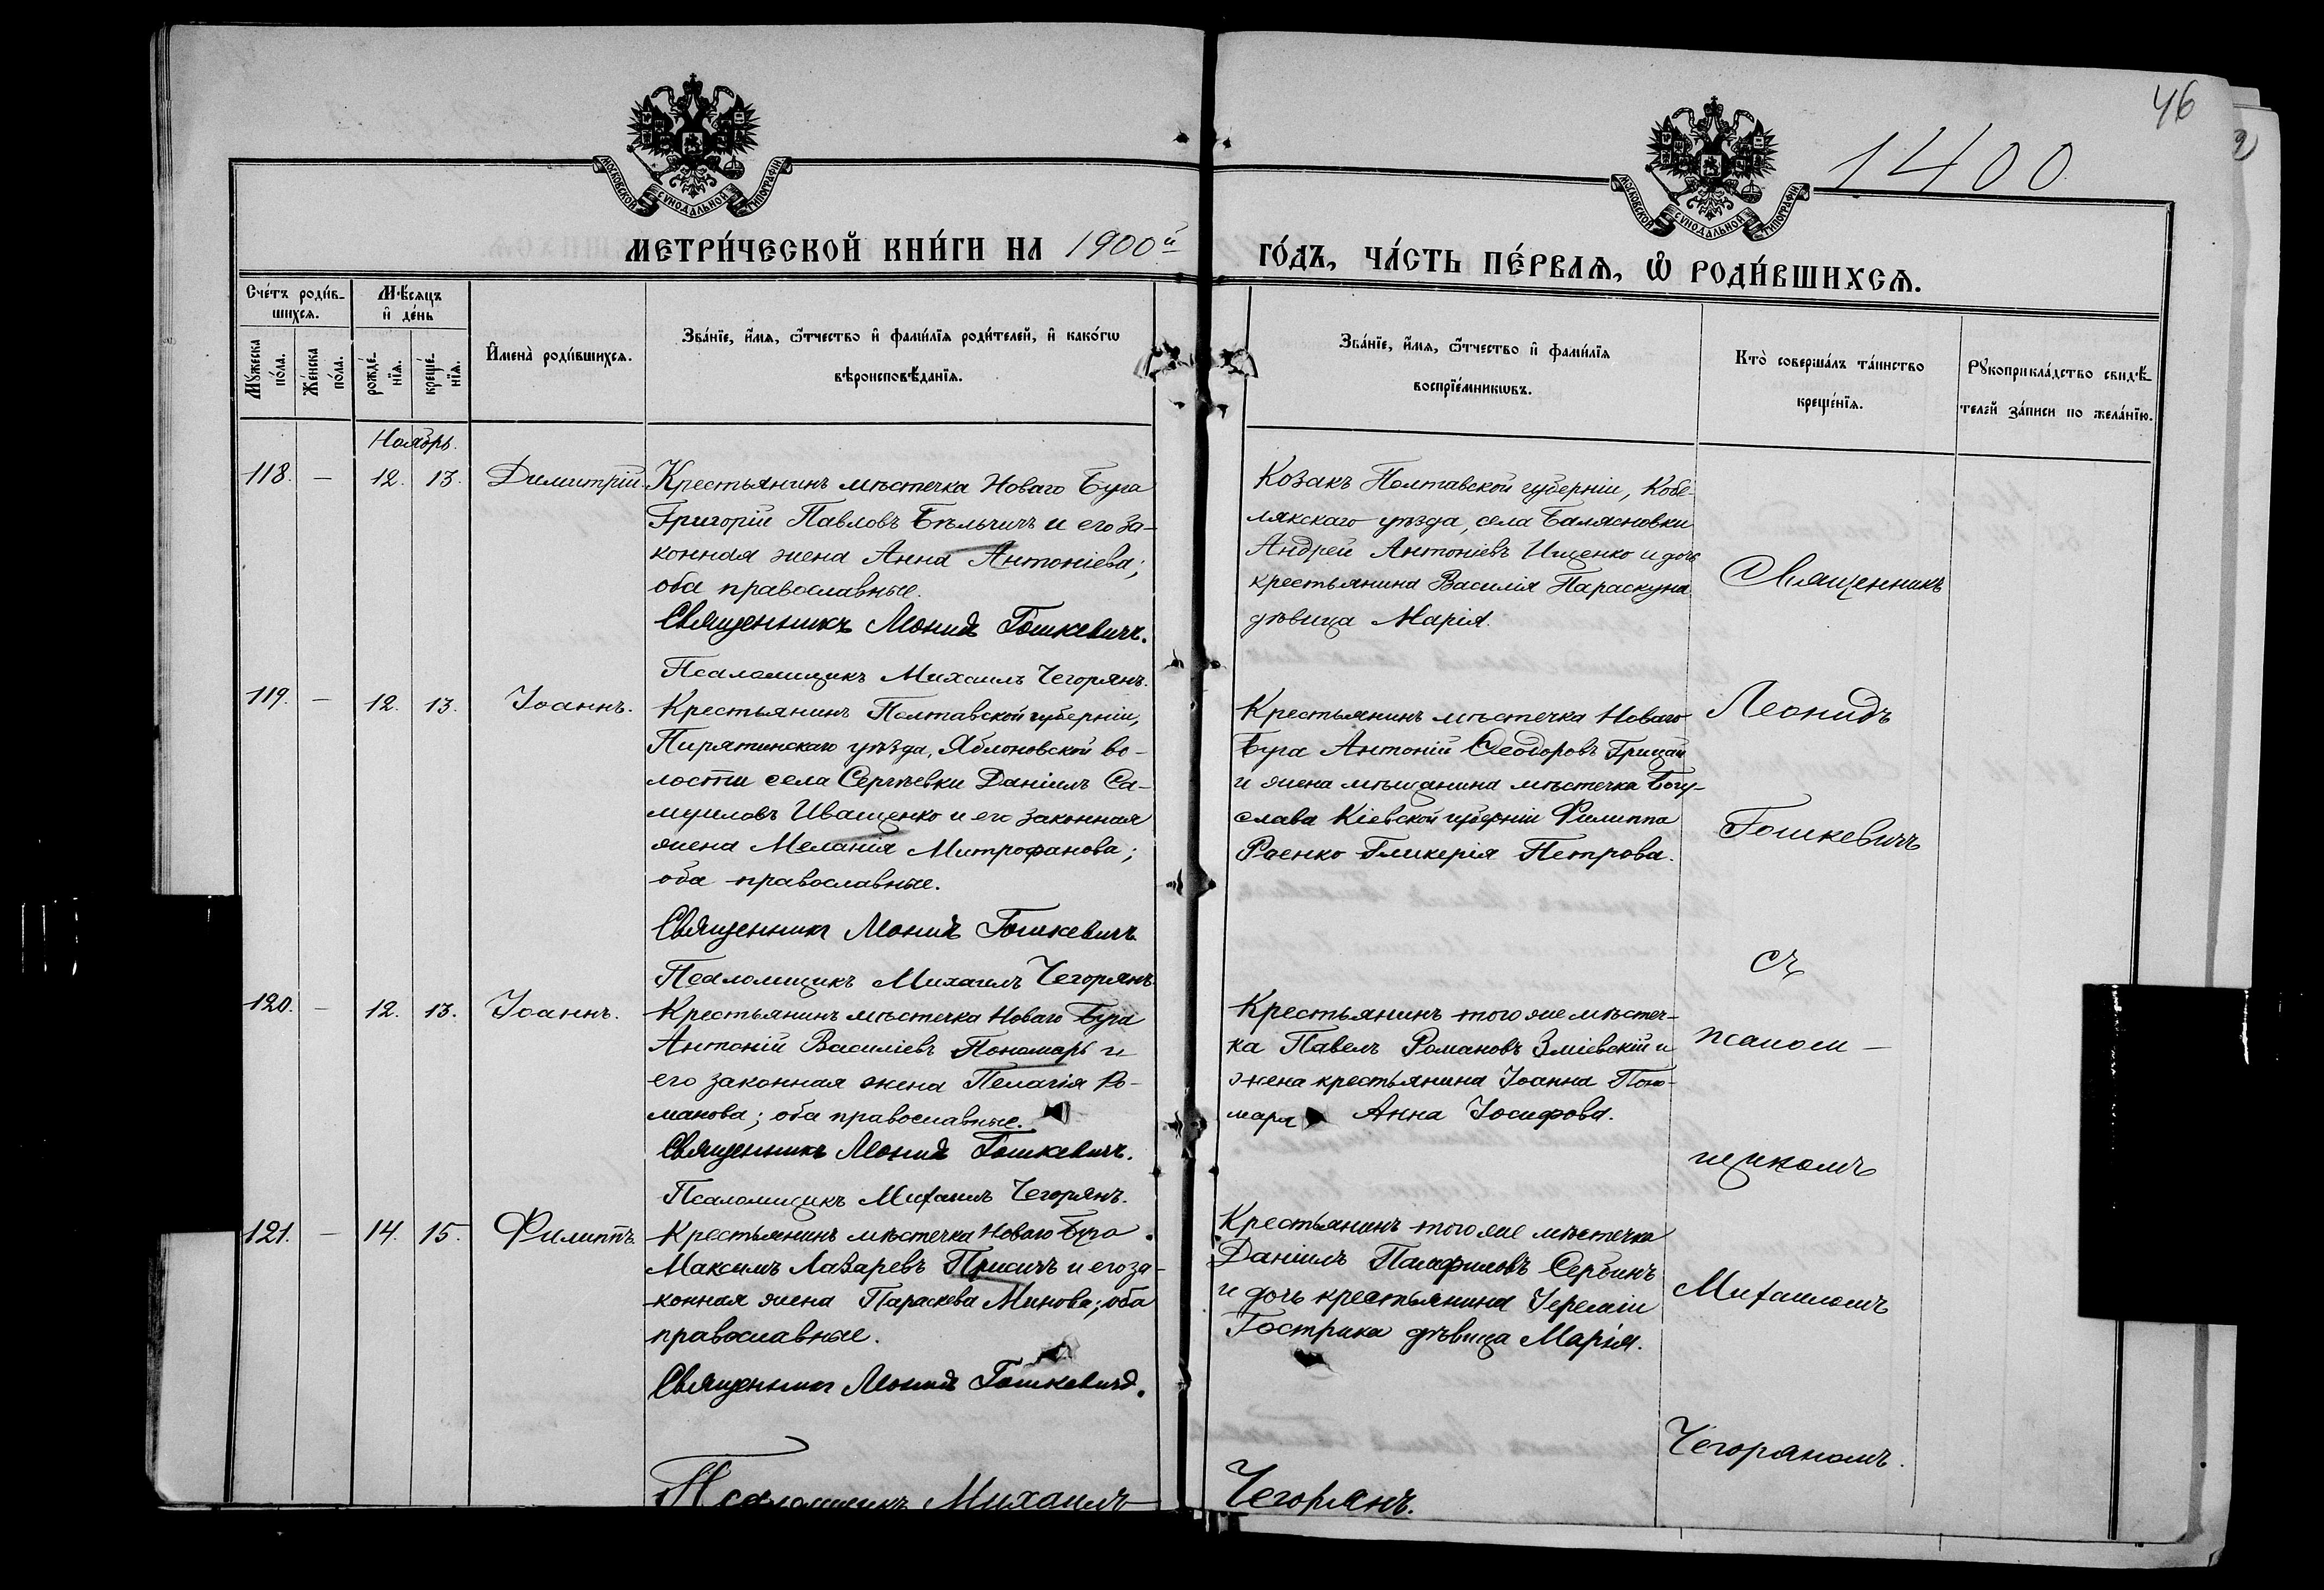 46
1400
МОСКОВСКОЙ СѴНОДАЛЬНОЙ ТИПОГРАФІИ
МОСКОВСКОЙ СѴНОДАЛЬНОЙ ТИПОГРАФІИ
МЕТРИ́ЧЕСКОЙ КНИ́ГИ НА 1900й
ГО́ДЪ, ЧА́СТЬ ПЕ́РВАѦ, Ѿ РОДИ́ВШИХСѦ.
Сче́тъ роди́в-
шихсѧ.
Мꙋ́жеска по́ла.
Же́нска по́ла.
Мѣ́сѧцъ
и҆ де́нь
рожде́-
нїѧ.
креще́-
нїѧ.
И҆мена̀ роди́вшихсѧ.
Зва́нїе, и҆́мѧ, ѻ҆́тчество и҆ фами́лїѧ роди́телей, и҆ како́гѡ
вѣроисповѣ́данїѧ.
Зва́нїе, и҆́мѧ, ѻ҆́тчество и҆ фами́лїѧ
воспрїе́мникѡвъ.
Кто̀ соверша́лъ та́инство
креще́нїѧ.
Рꙋкоприкла́дство свидѣ́-
телей за́писи по жела́нїю.
Ноябрь.
118. — 12. 13. Димитрій.
Крестьянинъ мѣстечка Новаго Буга
Григорій Павловъ Бѣльчичъ и его за-
конная жена Анна Антоніева;
оба православные.
Священникъ Леонидъ Гошкевичъ.
Псаломщикъ Михаилъ Чегорянъ.
Козакъ Полтавской губерніи, Кобе-
лякскаго уѣзда, села Балясновки
Андрей Антоніевъ Ищенко и дочь
крестьянина Василія Параскуна
дѣвица Марія.
119. — 12. 13. Іоаннъ.
Крестьянинъ Полтавской губерніи,
Пирятинскаго уѣзда, Яблоновской во-
лости села Сергѣевки Даніилъ Са-
муиловъ Иващенко и его законная
жена Меланія Митрофанова;
оба православные.
Священникъ Леонидъ Гошкевичъ
Псаломщикъ Михаилъ Чегорянъ.
Крестьянинъ мѣстечка Новаго
Буга Антоній Ѳеодоровъ Грицай
и жена мѣщанина мѣстечка Богу-
слава Кіевской губерніи Филиппа
Раенко Гликерія Петрова.
120. — 12. 13. Іоаннъ.
Крестьянинъ мѣстечка Новаго Буга
Антоній Василіевъ Пономарь и
его законная жена Пелагія Ро-
манова; оба православные.
Священникъ Леонидъ Гошкевичъ.
Псаломщикъ Михаилъ Чегорянъ.
Крестьянинъ того же мѣстеч-
ка Павелъ Романовъ Зміевскій и
жена крестьянина Іоанна Поно-
маря Анна Іосифова.
121. — 14. 15. Филиппъ.
Крестьянинъ мѣстечка Новаго Буга
Максимъ Лазаревъ Присичъ и его за-
конная жена Параскева Минова; оба
православные.
Священникъ Леонидъ Гошкевичъ.
Псаломщикъ Михаилъ Чегорянъ.
Крестьянинъ того же мѣстечка
Даніилъ Памфиловъ Сербинъ
и дочь крестьянина Іереміи
Гострика дѣвица Марія.
Священникъ
Леонидъ
Гошкевичъ
съ
псалом-
щикомъ
Михаиломъ
Чегоряномъ.